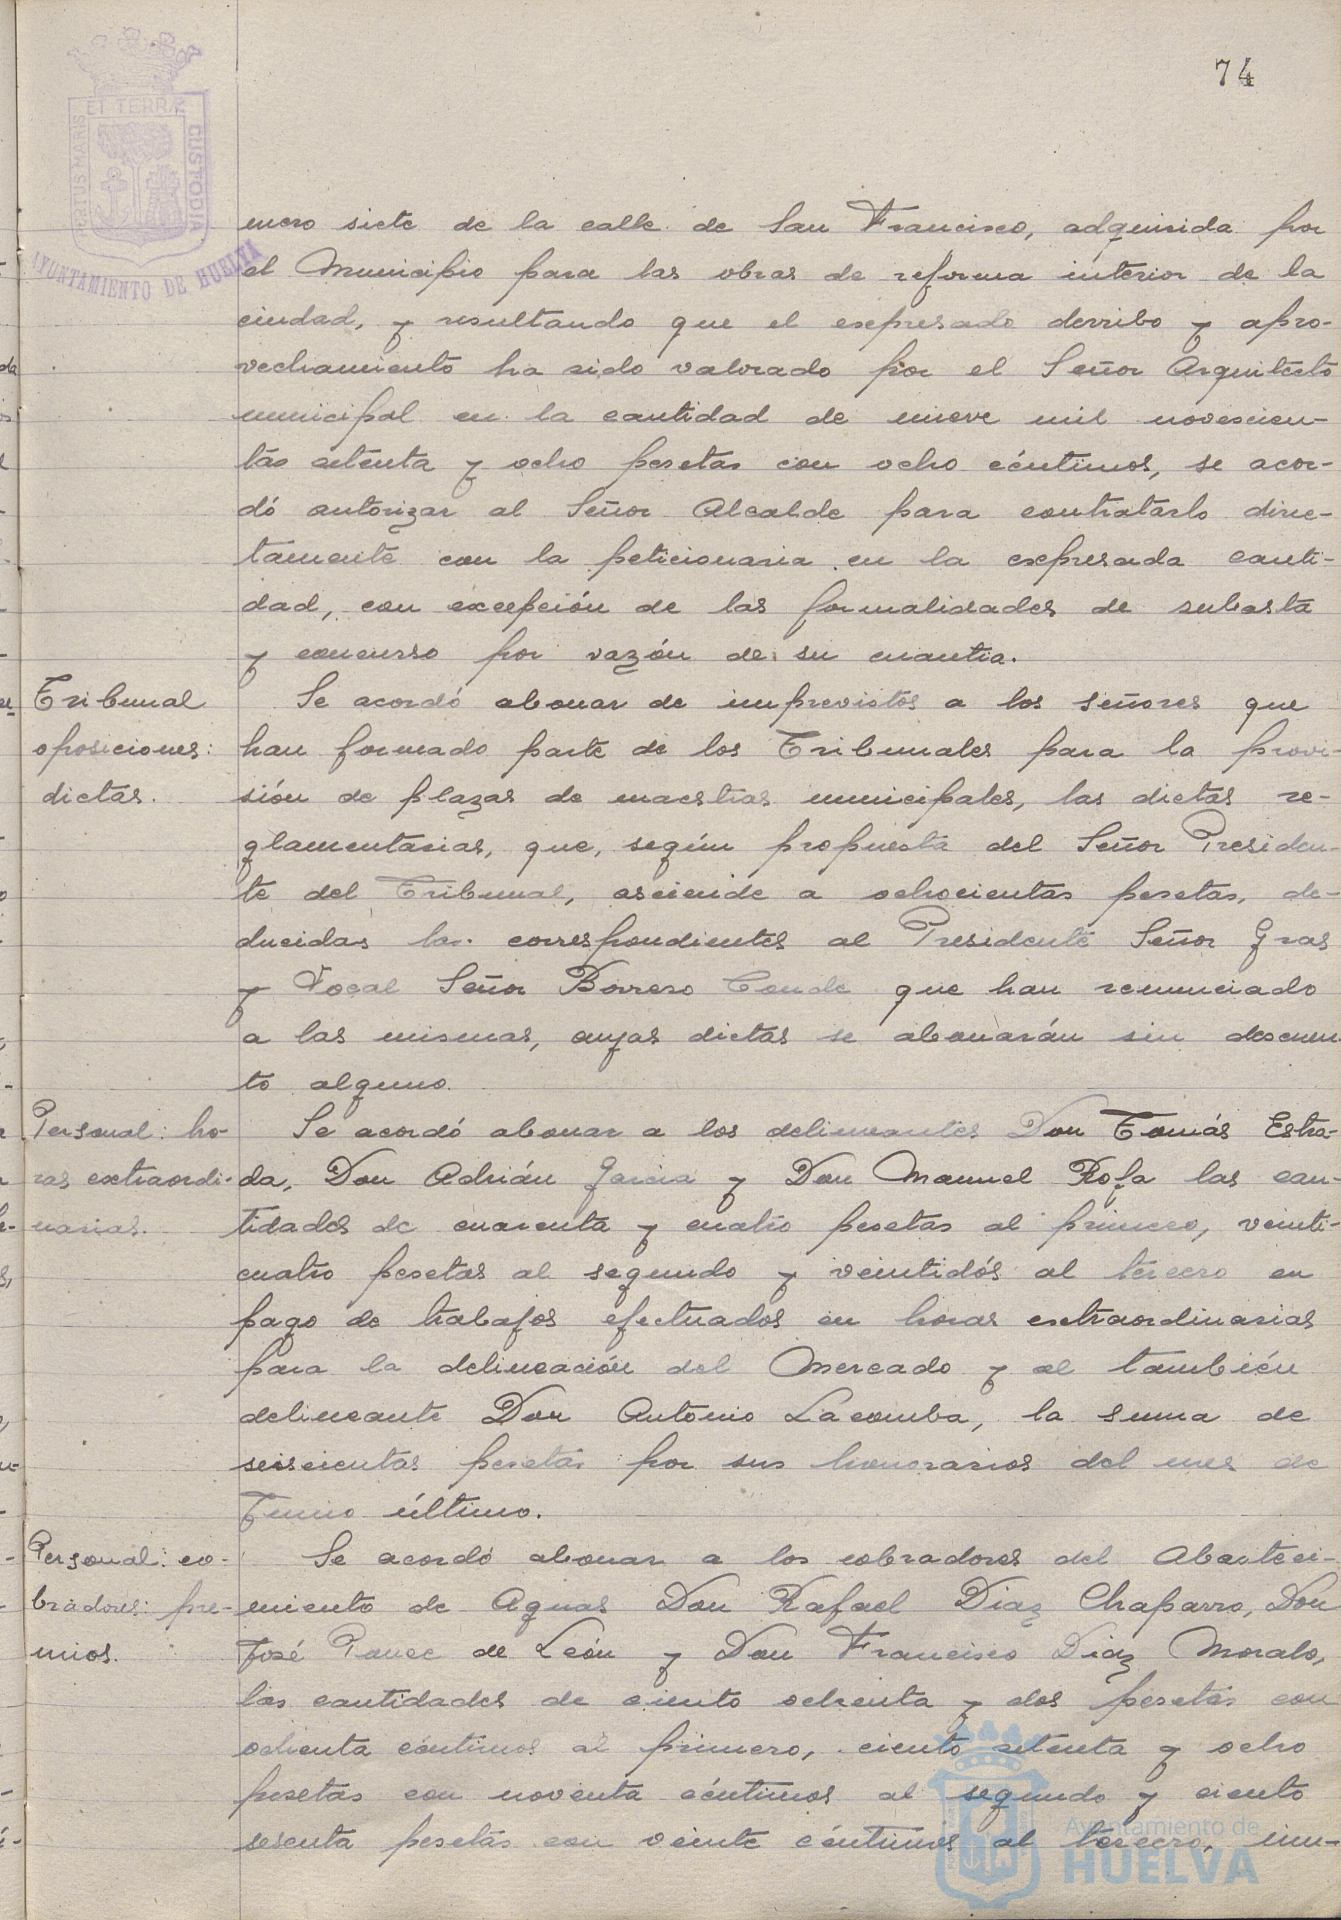 74
PORTUS MARIS ET TERRÆ CUSTODIA
AYUNTAMIENTO DE HUELVA
mero siete de la calle de San Francisco, adquirida por
el Municipio para las obras de reforma interior de la
ciudad, y resultando que el expresado derribo y apro-
vechamiento ha sido valorado por el Señor Arquitecto
municipal en la cantidad de nueve mil novescien-
tas setenta y ocho pesetas con ocho céntimos, se acor-
dó autorizar al Señor Alcalde para contratarlo direc-
tamente con la peticionaria en la expresada canti-
dad, con excepción de las formalidades de subasta
y concurso por razón de su cuantia.
Tribunal
oposiciones:
dietas.
Se acordó abonar de imprevistos a los señores que
han formado parte de los Tribunales para la provi-
sión de plazas de maestras municipales, las dietas re-
glamentarias, que, según propuesta del Señor Presiden-
te del Tribunal, asciende a ochocientas pesetas, de-
ducidas las correspondientes al Presidente Señor Gras
y Vocal Señor Borrero Conde que han renunciado
a las mismas, cuyas dietas se abonarán sin descuen-
to alguno.
Personal: ho-
ras extraordi-
narias.
Se acordó abonar a los delineantes Don Tomás Estra-
da, Don Adrián Garcia y Don Manuel Rofa las can-
tidades de cuarenta y cuatro pesetas al primero, veinti-
cuatro pesetas al segundo y veintidós al tercero en
pago de trabajos efectuados en horas extraordinarias
para la delineación del Mercado y al también
delineante Don Antonio Lacomba, la suma de
seiscientas pesetas por sus honorarios del mes de
Junio último.
Personal: co-
bradores: pre-
mios.
Se acordó abonar a los cobradores del Abasteci-
miento de Aguas Don Rafael Diaz Chaparro, Don
José Ponce de León y Don Francisco Diaz Moralo,
las cantidades de ciento ochenta y dos pesetas con
ochenta céntimos al primero, ciento setenta y ocho
pesetas con noventa céntimos al segundo y ciento
sesenta pesetas con veinte céntimos al tercero, im-
Ayuntamiento de
HUELVA